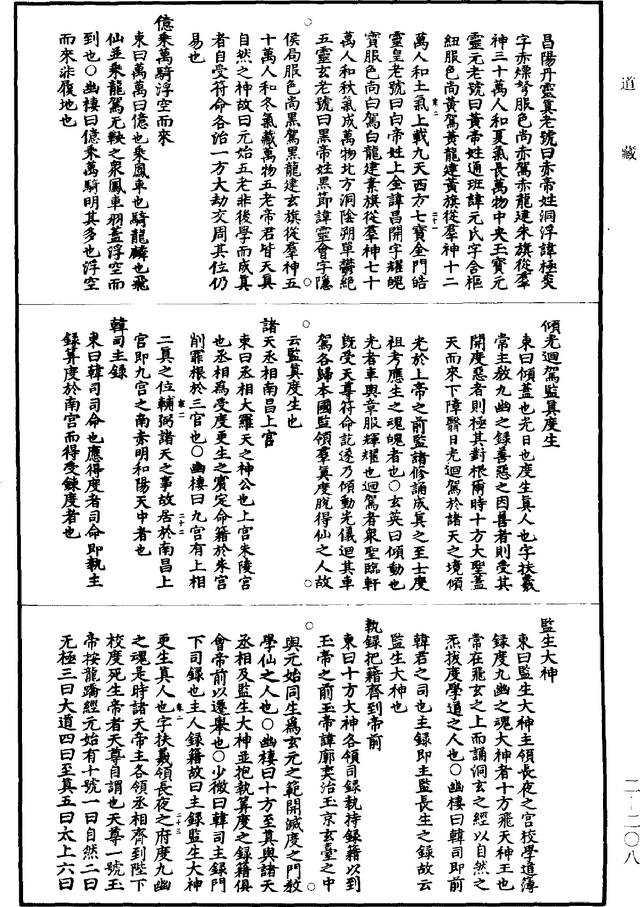 道藏
昌陽丹靈真老號曰赤帝姓洞浮諱極炎
字赤熛弩服色尚赤駕赤龍建朱旗從群
神三十萬人和夏氣長萬物中央玉寶元
靈元老號曰黃帝姓通班諱元氏字含樞
紐服色尚黃駕黃龍建黃旗從羣神十二
萬人和土氣上載九天西方七寶金門皓
靈皇老號曰白帝姓上金諱昌開字耀魄
寶服色尚白駕白龍建素旗從羣神七十
萬人和秋氣成萬物北方洞陰朔單鬱絕
五靈玄老號曰黑帝姓黑節諱靈會字隱
侯局服色尚黑駕黑龍建玄旗從羣神五
十萬人和冬氣藏萬物五老帝君皆天真
自然之神故曰元始五老非後學而成真
者自受符命各治一方大劫交周其位仍
易也
億乘萬騎浮空而來
東曰萬萬曰億也乘鳳車也騎龍麟也飛
仙並乘龍駕无鞅之眾鳳車羽蓋浮空而
到也○幽棲曰億乘萬騎明其多也浮空
而來非履地也
傾光迴駕監真度生
東曰傾蓋也光日也度生真人也字扶羲
常主教九幽之錄善惡之因善者則受其
開度惡者則極其對根爾時十方大聖蓋
天而來下障翳日光迴駕於諸天之境傾
光於上帝之前監諸修誦成真之至士度
祖考應生之魂魄者也○玄英曰傾動也
光者車輿章服輝耀也迴駕者眾聖臨軒
既受天尊符命訖遂乃傾動光儀迴其車
駕各歸本國監領羣真度脫得仙之人故
云監真度生也
諸天丞相南昌上宮
東曰丞相大羅天之神公也上宮朱陵宮
也丞相為受度更生之賓定命籍於朱宮
削罪根於三官也○幽棲曰九宮有上相
二真之位輔弼諸天之事故居於南昌上
宮即九宮之南赤明和陽天中者也
韓司主錄
東曰韓司司命也應得度者司命即執主
錄筭度於南宮而得受鍊度者也
監生大神
東曰監生大神主領長夜之宮校學道簿
錄度九幽之魂大神者十方飛天神王也
常在飛玄之上而誦洞玄之經以自然之
炁拔度學道之人也○幽棲曰韓司即前
韓君之司也主錄即主監長生之錄故云
監生大神也
執錄把籍齊到帝前
東曰十方大神各領司錄執持錄籍以到
玉帝之前玉帝諱廓奕治玉京玄臺之中
與元始同生為玄元之範開滅度之門教
學仙之人也○幽棲曰十方至真與諸天
丞相及監生大神並抱執筭度之錄籍俱
會帝前以遷舉也○少微曰韓司主錄門
下司錄也主人錄籍故曰主錄監生大神
更生真人也字扶羲領長夜之府度九幽
之魂是時諸天帝主各領丞相齊到陛下
校度死生帝者天尊自謂也天尊一號玉
帝按龍蹻經元始有十號一曰自然二曰
无極三曰大道四曰至真五曰太上六曰
二-二〇八